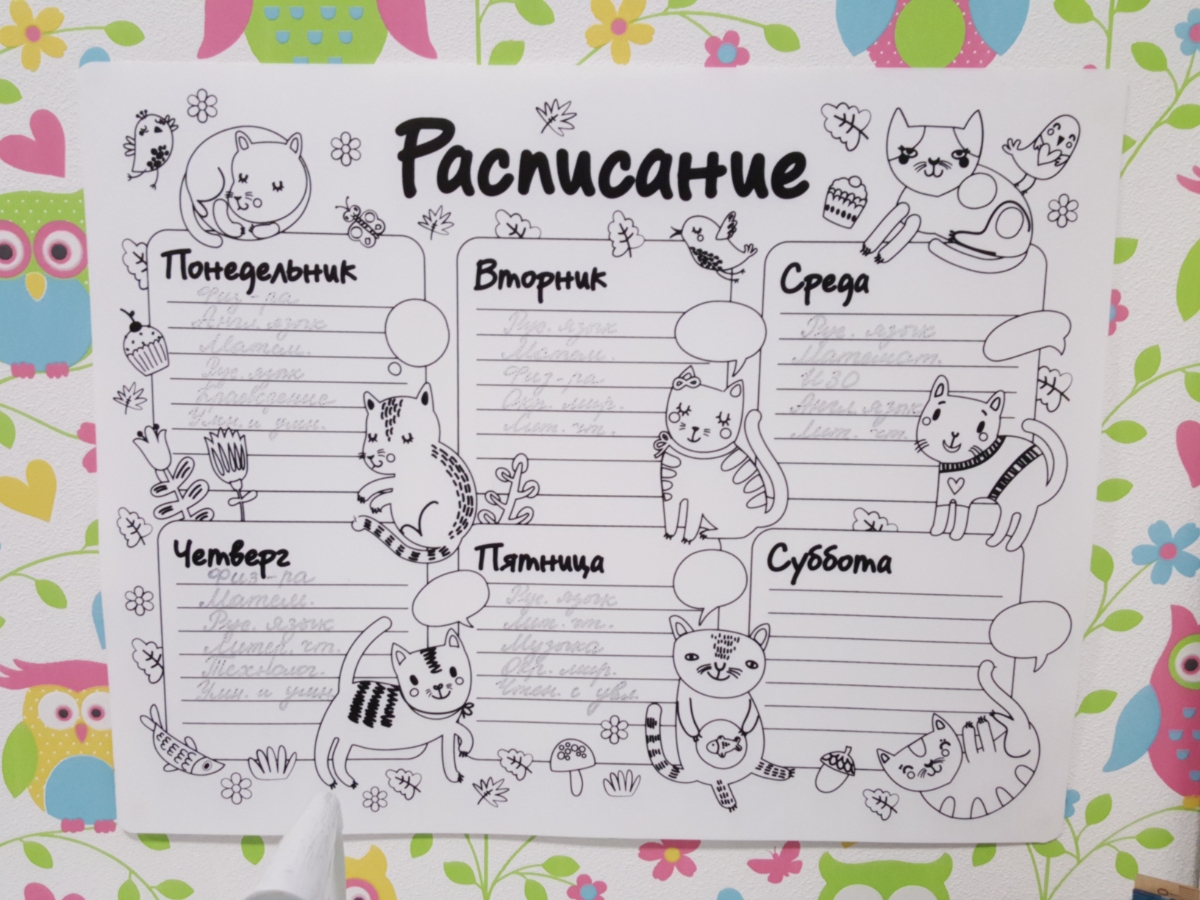 Расписание
Понедельник
Физ-ра
Англ. язык
Матем.
Рус. язык
Краеведение
Умн. и умн.
Вторник
Рус. язык
Матем.
Физ-ра
Окр. мир.
Лит. чт.
Среда
Рус. язык
Математ.
ИЗО
Англ. язык
Лит. чт.
Четверг
Физ-ра
Матем.
Рус. язык
Литер. чт.
Технолог.
Умн. и умн
Пятница
Рус. язык
Лит. чт.
Музыка
Окр. мир.
Чтен. с увл.
Суббота